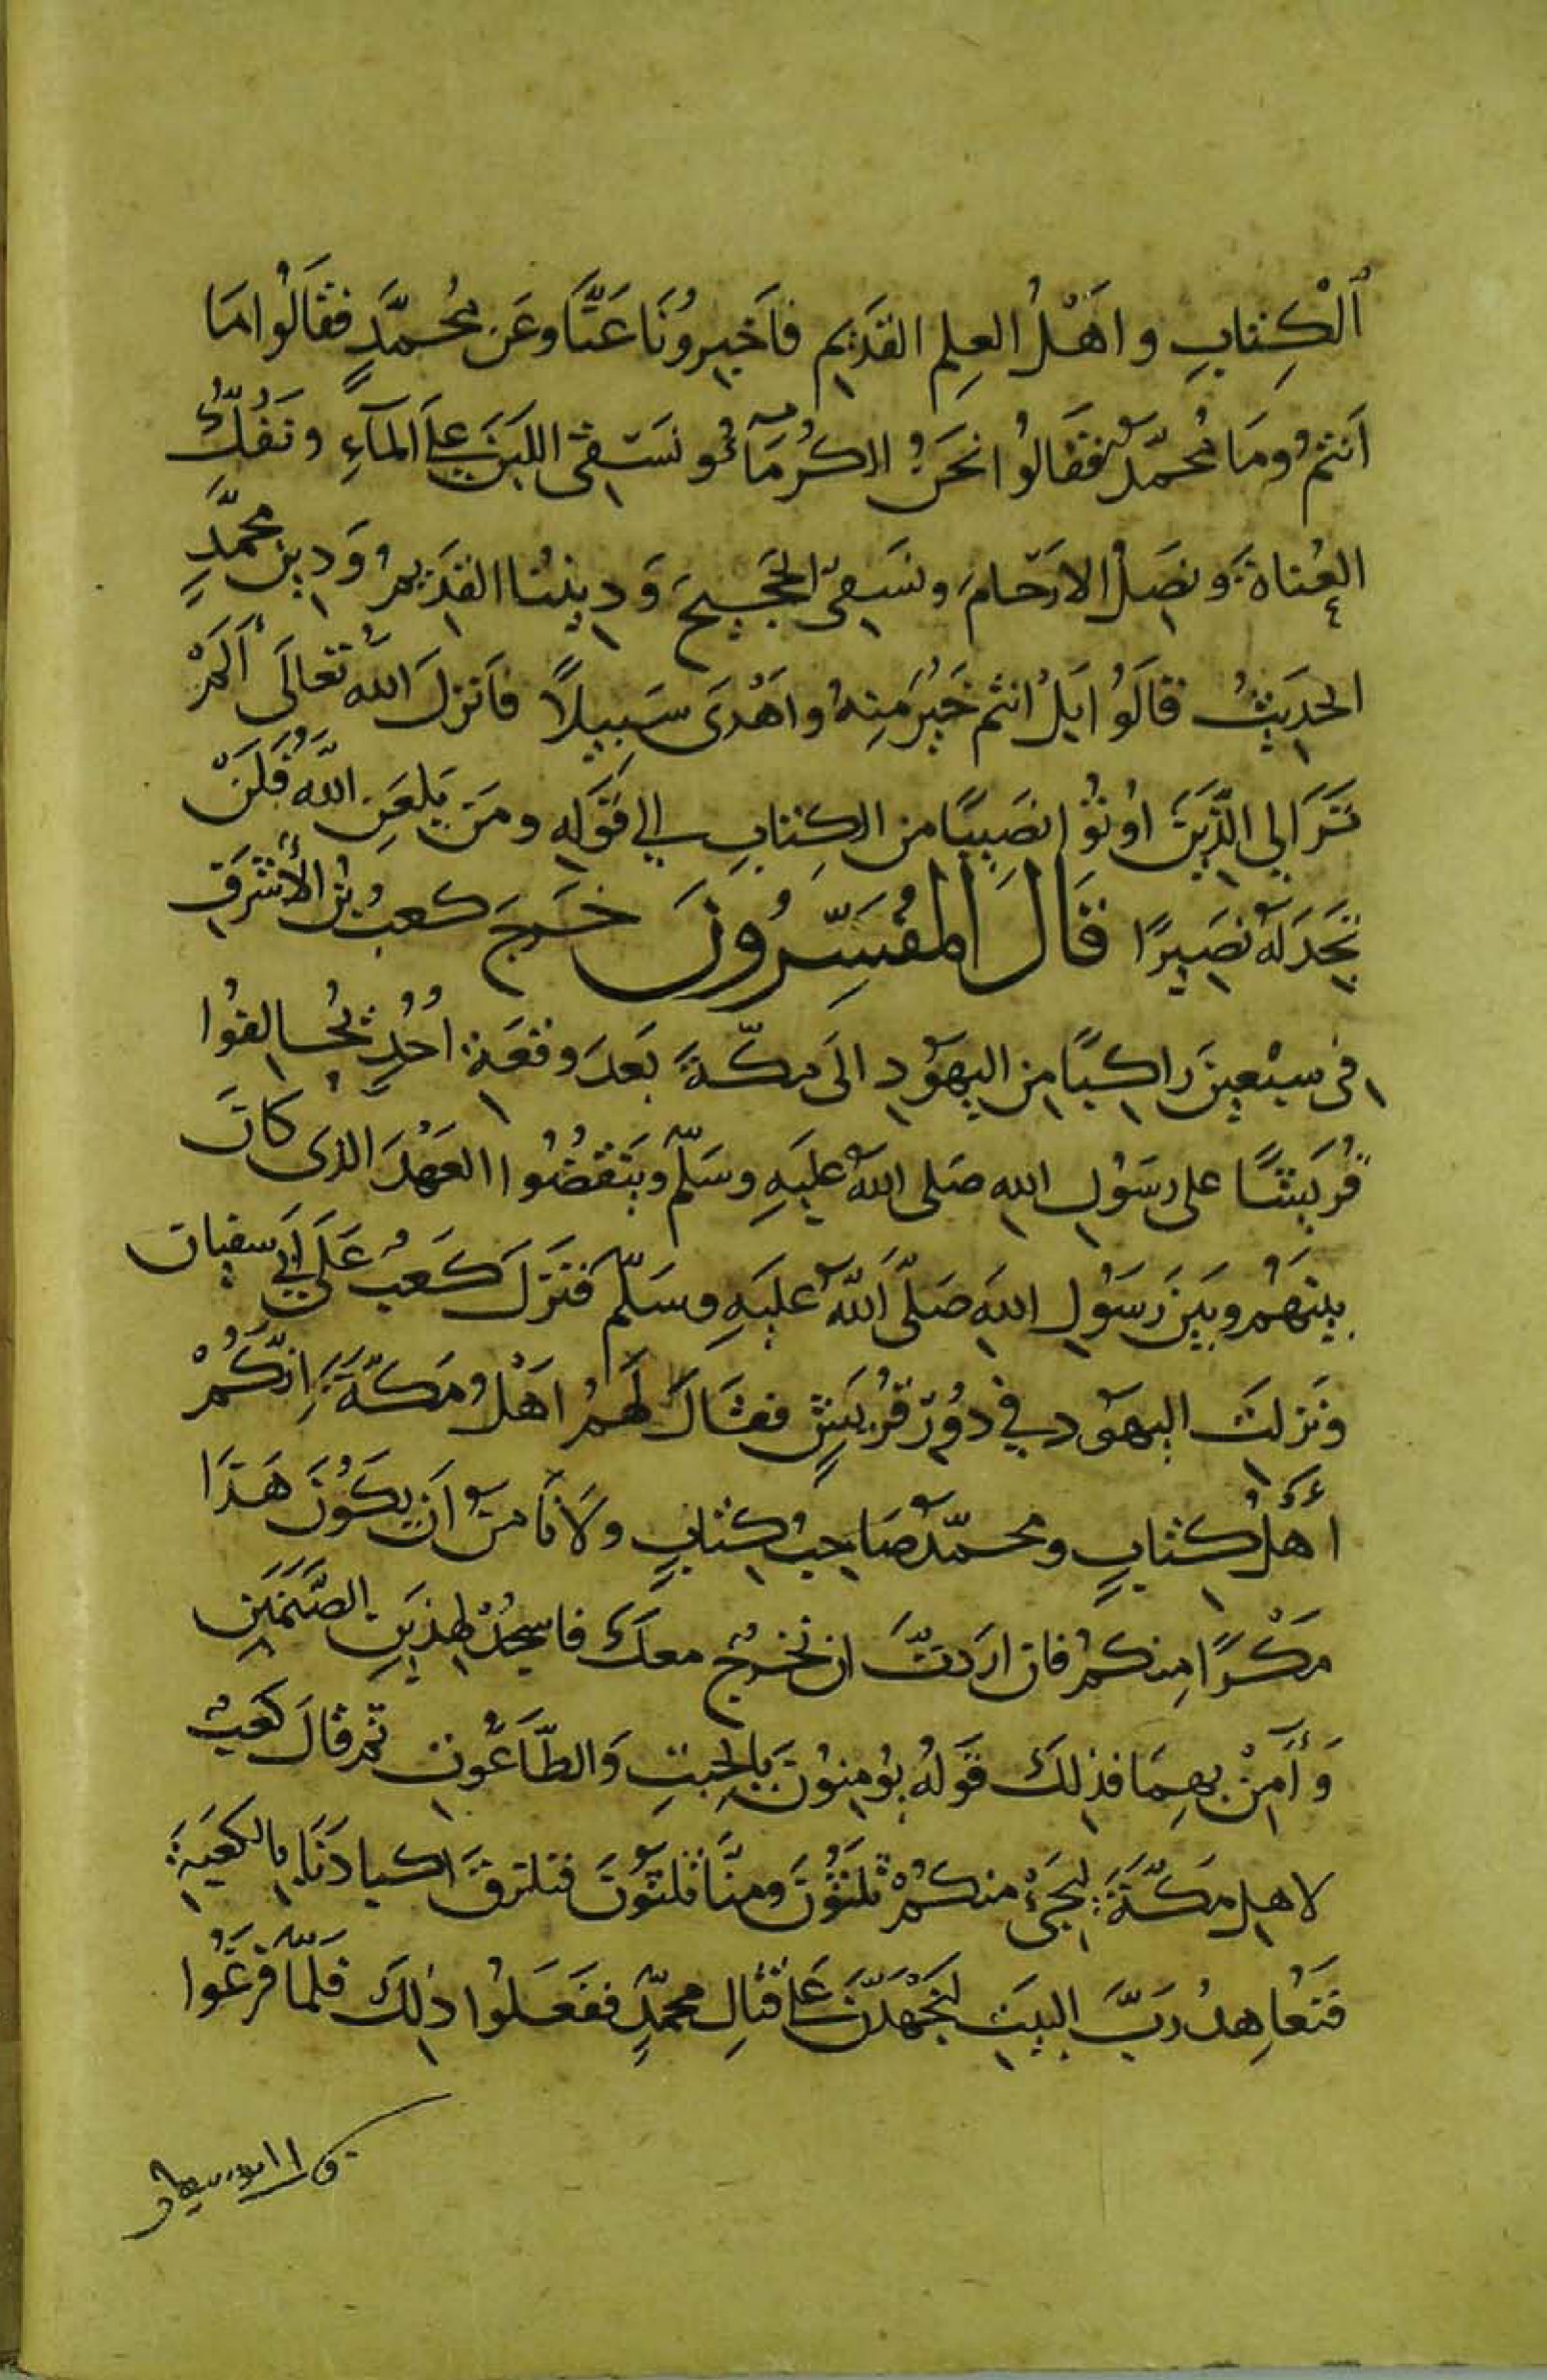 ٱلْكِتابِ واَهْلُ العِلمِ القَديمِ فاَخبِرونَا عَنَّا وعَن مُحمَّدٍ فقَالُوا مَا
اَنتمُ ومَا مُحمّدٌ فقَالُوا نحَنُ الكُرمَآءُ و نَسَقى اللبَنَ علَى المآءِ ونَفُكُّ
العُناةَ ونصَلُ الارَحامَ ونَسَقى الحَجيجَ وَدِينُنا القدَيمُ وَدِين محمَّدٍ
الحَديثُ قالَوُا بَلْ انتم خَيرُ مِنهُ واَهْدَى سَبِيلاً فاَنزلَ اللّهُ تعَالَى أَلَمْ
تَرَ الِى الَّذيَنَ اوُتوُا نصَيبًا من الكِتابِ الي قَولهِ ومَن يَلعَنِ اللّهُ فلَنَ
تجَدَ لهُ نصَيرًا قَالَ المُفسِّرُونَ خَرجَ كعبُ بنُ الأشَرَفِ
فى سبَعينَ راكبًا من اليهَوُدِ الَى مكّةَ بَعدَ وقعَة اُحُدٍ ليُحالِفوُا
قُرَيشًا على رسَوُلِ الله صَلى اللّهُ عليَهِ وسَلّم وينَقضُوا العَهْدَ الذى كانَ
بينَهُم وبَينَ رَسَوُلِ اللهِ صَلَّى اَللّهُ عليَهِ وسَلّم فنَزلَ كَعبُ عَلَى اَبي سفيان
ونَزلتَ اليهوُد في دُورِ قُريَشٍ فقَالَ لَهمُ اَهْلُ مَكّةَ اِنّكُمْ
أهْلُ كتابٍ ومحمّدٌ صاحِبُ كتابٍ ولاَ نأمنُ اَن يكَوُنَ هَذَا
مَكْرًا مِنكمُ فان ارَدتَّ ان نخرُج معكَ فاسجُدْ لهذَينِ الصَّنَمَينِ
وَأمِنْ بهِمَا فذلكَ قوَلهُ يوُمِنوُنَ بالجِبتِ وَالطّاغوُت ثم قالَ كَعبُ
لاهلِ مَكّةَ ليجَئ منكمُ ثلثَوُنَ ومنَّا ثلثوُنَ فنلزقَ اكبادَنَا بالكعبَةِ
فنَعُاهِدُ رَبَّ البيَت لنَجَهْدَنَّ علَى قتالِ محمّدٍ ففعَلوُا ذلكَ فلَمّا فرَغُوا
قال ابو سفيان